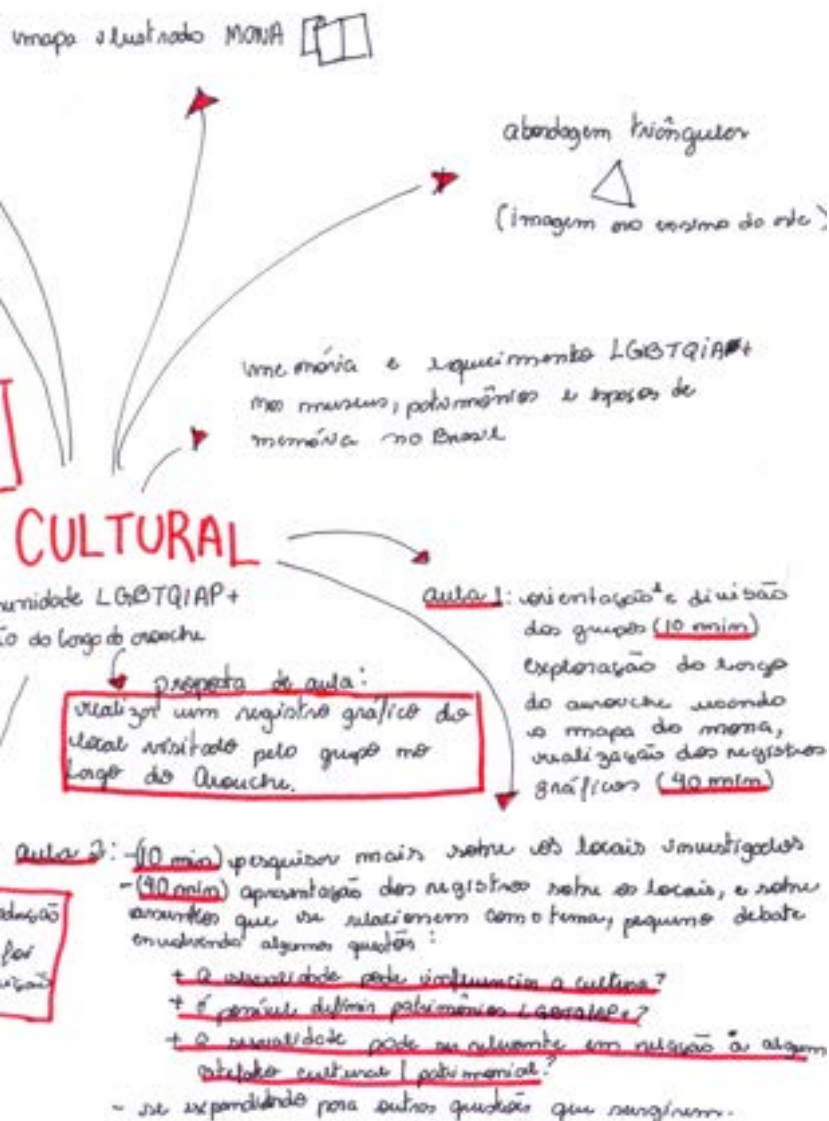 mapa ilustrado MONA
abordagem triângular
(imagem no ensino da arte)
memória e esquecimento LGBTQIAP+
nos museus, patrimônios e espaços de
memória no Brasil
CULTURAL
unidade LGBTQIAP+
ão do largo do arouche
proposta de aula:
realizar um registro gráfico do
local visitado pelo grupo no
Largo do Arouche.
aula 1: orientação e divisão
dos grupos (10 min)
exploração do largo
do arouche usando
o mapa do mona,
realização dos registros
gráficos (40 min)
aula 2: -(10 min) pesquisar mais sobre os locais investigados
-(40 min) apresentação dos registros sobre os locais, e sobre
assuntos que se relacionem com o tema, pequeno debate
envolvendo algumas questões:
+ a sexualidade pode influenciar a cultura?
+ é possível definir patrimônios LGBTQIAP+?
+ a sexualidade pode ser relevante em relação à algum
artefato cultural / patrimonial?
- se expandindo para outras questões que surgirem.
foi